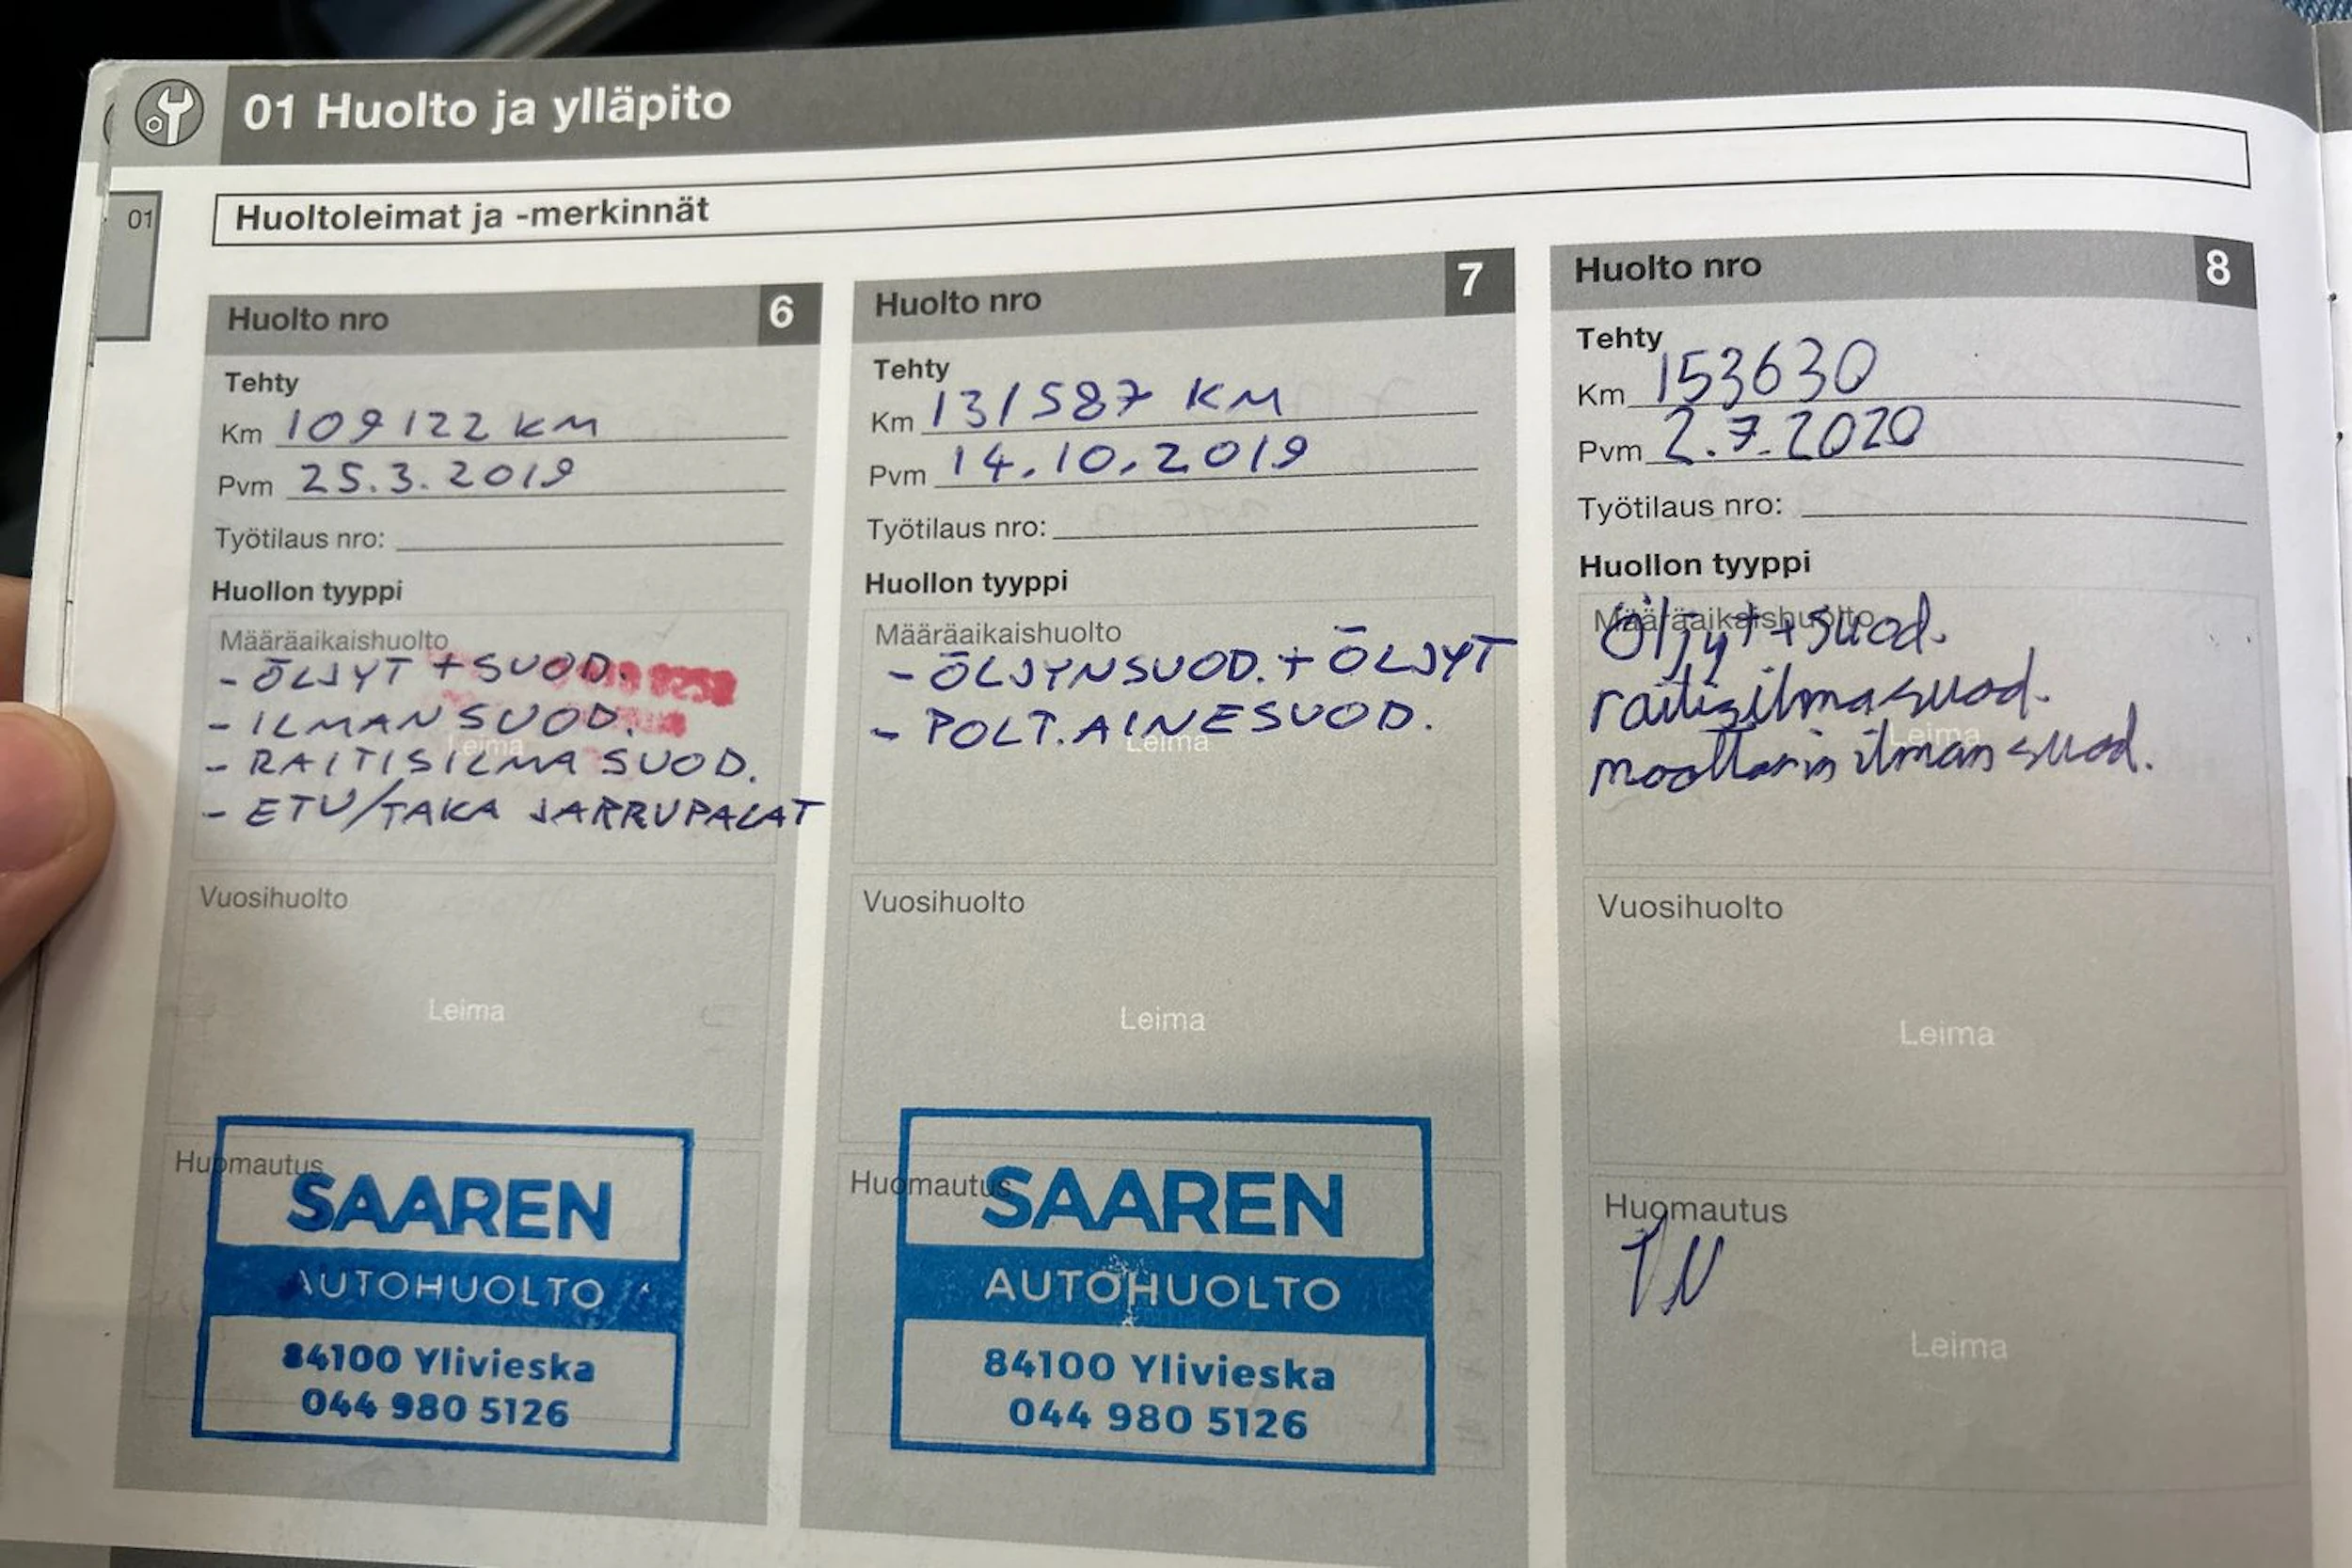 01 Huolto ja ylläpito
01
Huoltoleimat ja -merkinnät
Huolto nro 6
Tehty
Km 109122 KM
Pvm 25.3.2019
Työtilaus nro:
Huollon tyyppi
Määräaikaishuolto
- ÖLJYT + SUOD.
- ILMANSUOD.
Leima
- RAITISILMASUOD.
- ETU/TAKA JARRUPALAT
Vuosihuolto
Leima
Huomautus
SAAREN
AUTOHUOLTO
84100 Ylivieska
044 980 5126
Huolto nro 7
Tehty
Km 131587 KM
Pvm 14.10.2019
Työtilaus nro:
Huollon tyyppi
Määräaikaishuolto
- ÖLJYNSUOD. + ÖLJYT
- POLT.AINESUOD.
Leima
Vuosihuolto
Leima
Huomautus
SAAREN
AUTOHUOLTO
84100 Ylivieska
044 980 5126
Huolto nro 8
Tehty
Km 153630
Pvm 2.7.2020
Työtilaus nro:
Huollon tyyppi
Määräaikaishuolto
Öljyt + suod.
raitisilmasuod.
Leima
moottorin ilmansuod.
Vuosihuolto
Leima
Huomautus
Leima